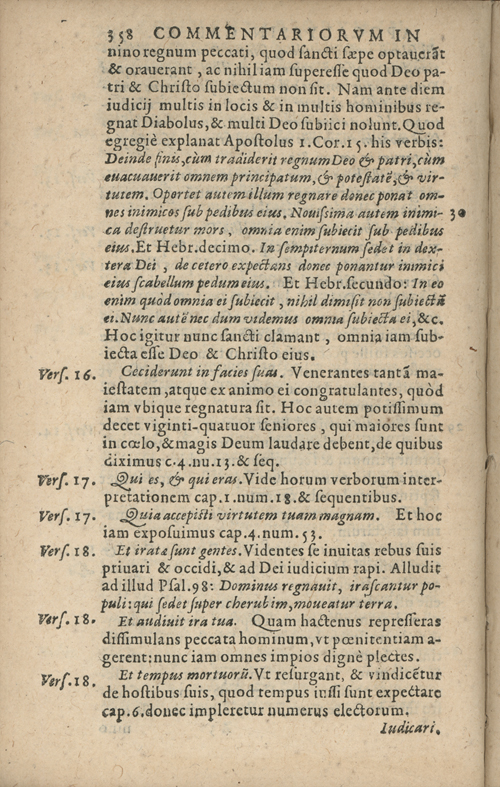 358 COMMENTARIORVM IN
nino regnum peccati, quod ſancti ſæpe optauerāt
& orauerant, ac nihil iam ſupereſſe quod Deo pa-
tri & Chriſto ſubiectum non ſit. Nam ante diem
iudicij multis in locis & in multis hominibus re-
gnat Diabolus, & multi Deo ſubiici nolunt. Quod
egregiè explanat Apoſtolus 1. Cor. 15. his verbis:
Deinde finis, cùm tradiderit regnum Deo & patri, cùm
euacuauerit omnem principatum, & poteſtatē, & vir-
tutem. Oportet autem illum regnare donec ponat om-
nes inimicos ſub pedibus eius. Nouiſſima autem inimi- 30
ca deſtruetur mors, omnia enim ſubiecit ſub pedibus
eius. Et Hebr. decimo. In ſempiternum ſedet in dex-
tera Dei, de cetero expectans donec ponantur inimici
eius ſcabellum pedum eius. Et Hebr. ſecundo: In eo
enim quòd omnia ei ſubiecit, nihil dimiſit non ſubiectū
ei. Nunc autē nec dum videmus omnia ſubiecta ei, &c.
Hoc igitur nunc ſancti clamant, omnia iam ſub-
iecta eſſe Deo & Chriſto eius.
Verſ. 16. Ceciderunt in facies ſuas. Venerantes tantā ma-
ieſtatem, atque ex animo ei congratulantes, quòd
iam vbique regnatura ſit. Hoc autem potiſſimum
decet viginti-quatuor ſeniores, qui maiores ſunt
in cœlo, & magis Deum laudare debent, de quibus
diximus c. 4. nu. 13. & ſeq.
Verſ. 17. Qui es, & qui eras. Vide horum verborum inter-
pretationem cap. 1. num. 18. & ſequentibus.
Verſ. 17. Quia accepiſti virtutem tuam magnam. Et hoc
iam expoſuimus cap. 4. num. 53.
Verſ. 18. Et iratæ ſunt gentes. Videntes ſe inuitas rebus ſuis
priuari & occidi, & ad Dei iudicium rapi. Alludit
ad illud Pſal. 98: Dominus regnauit, iraſcantur po-
puli: qui ſedet ſuper cherubim, moueatur terra.
Verſ. 18. Et aduiuit ira tua. Quam hactenus repreſſeras
diſſimulans peccata hominum, vt pœnitentiam a-
gerent: nunc iam omnes impios dignè plectes.
Verſ. 18. Et tempus mortuorū. Vt reſurgant, & vindicētur
de hoſtibus ſuis, quod tempus iuſſi ſunt expectare
cap. 6. donec impleretur numerus electorum.
Iudicari.